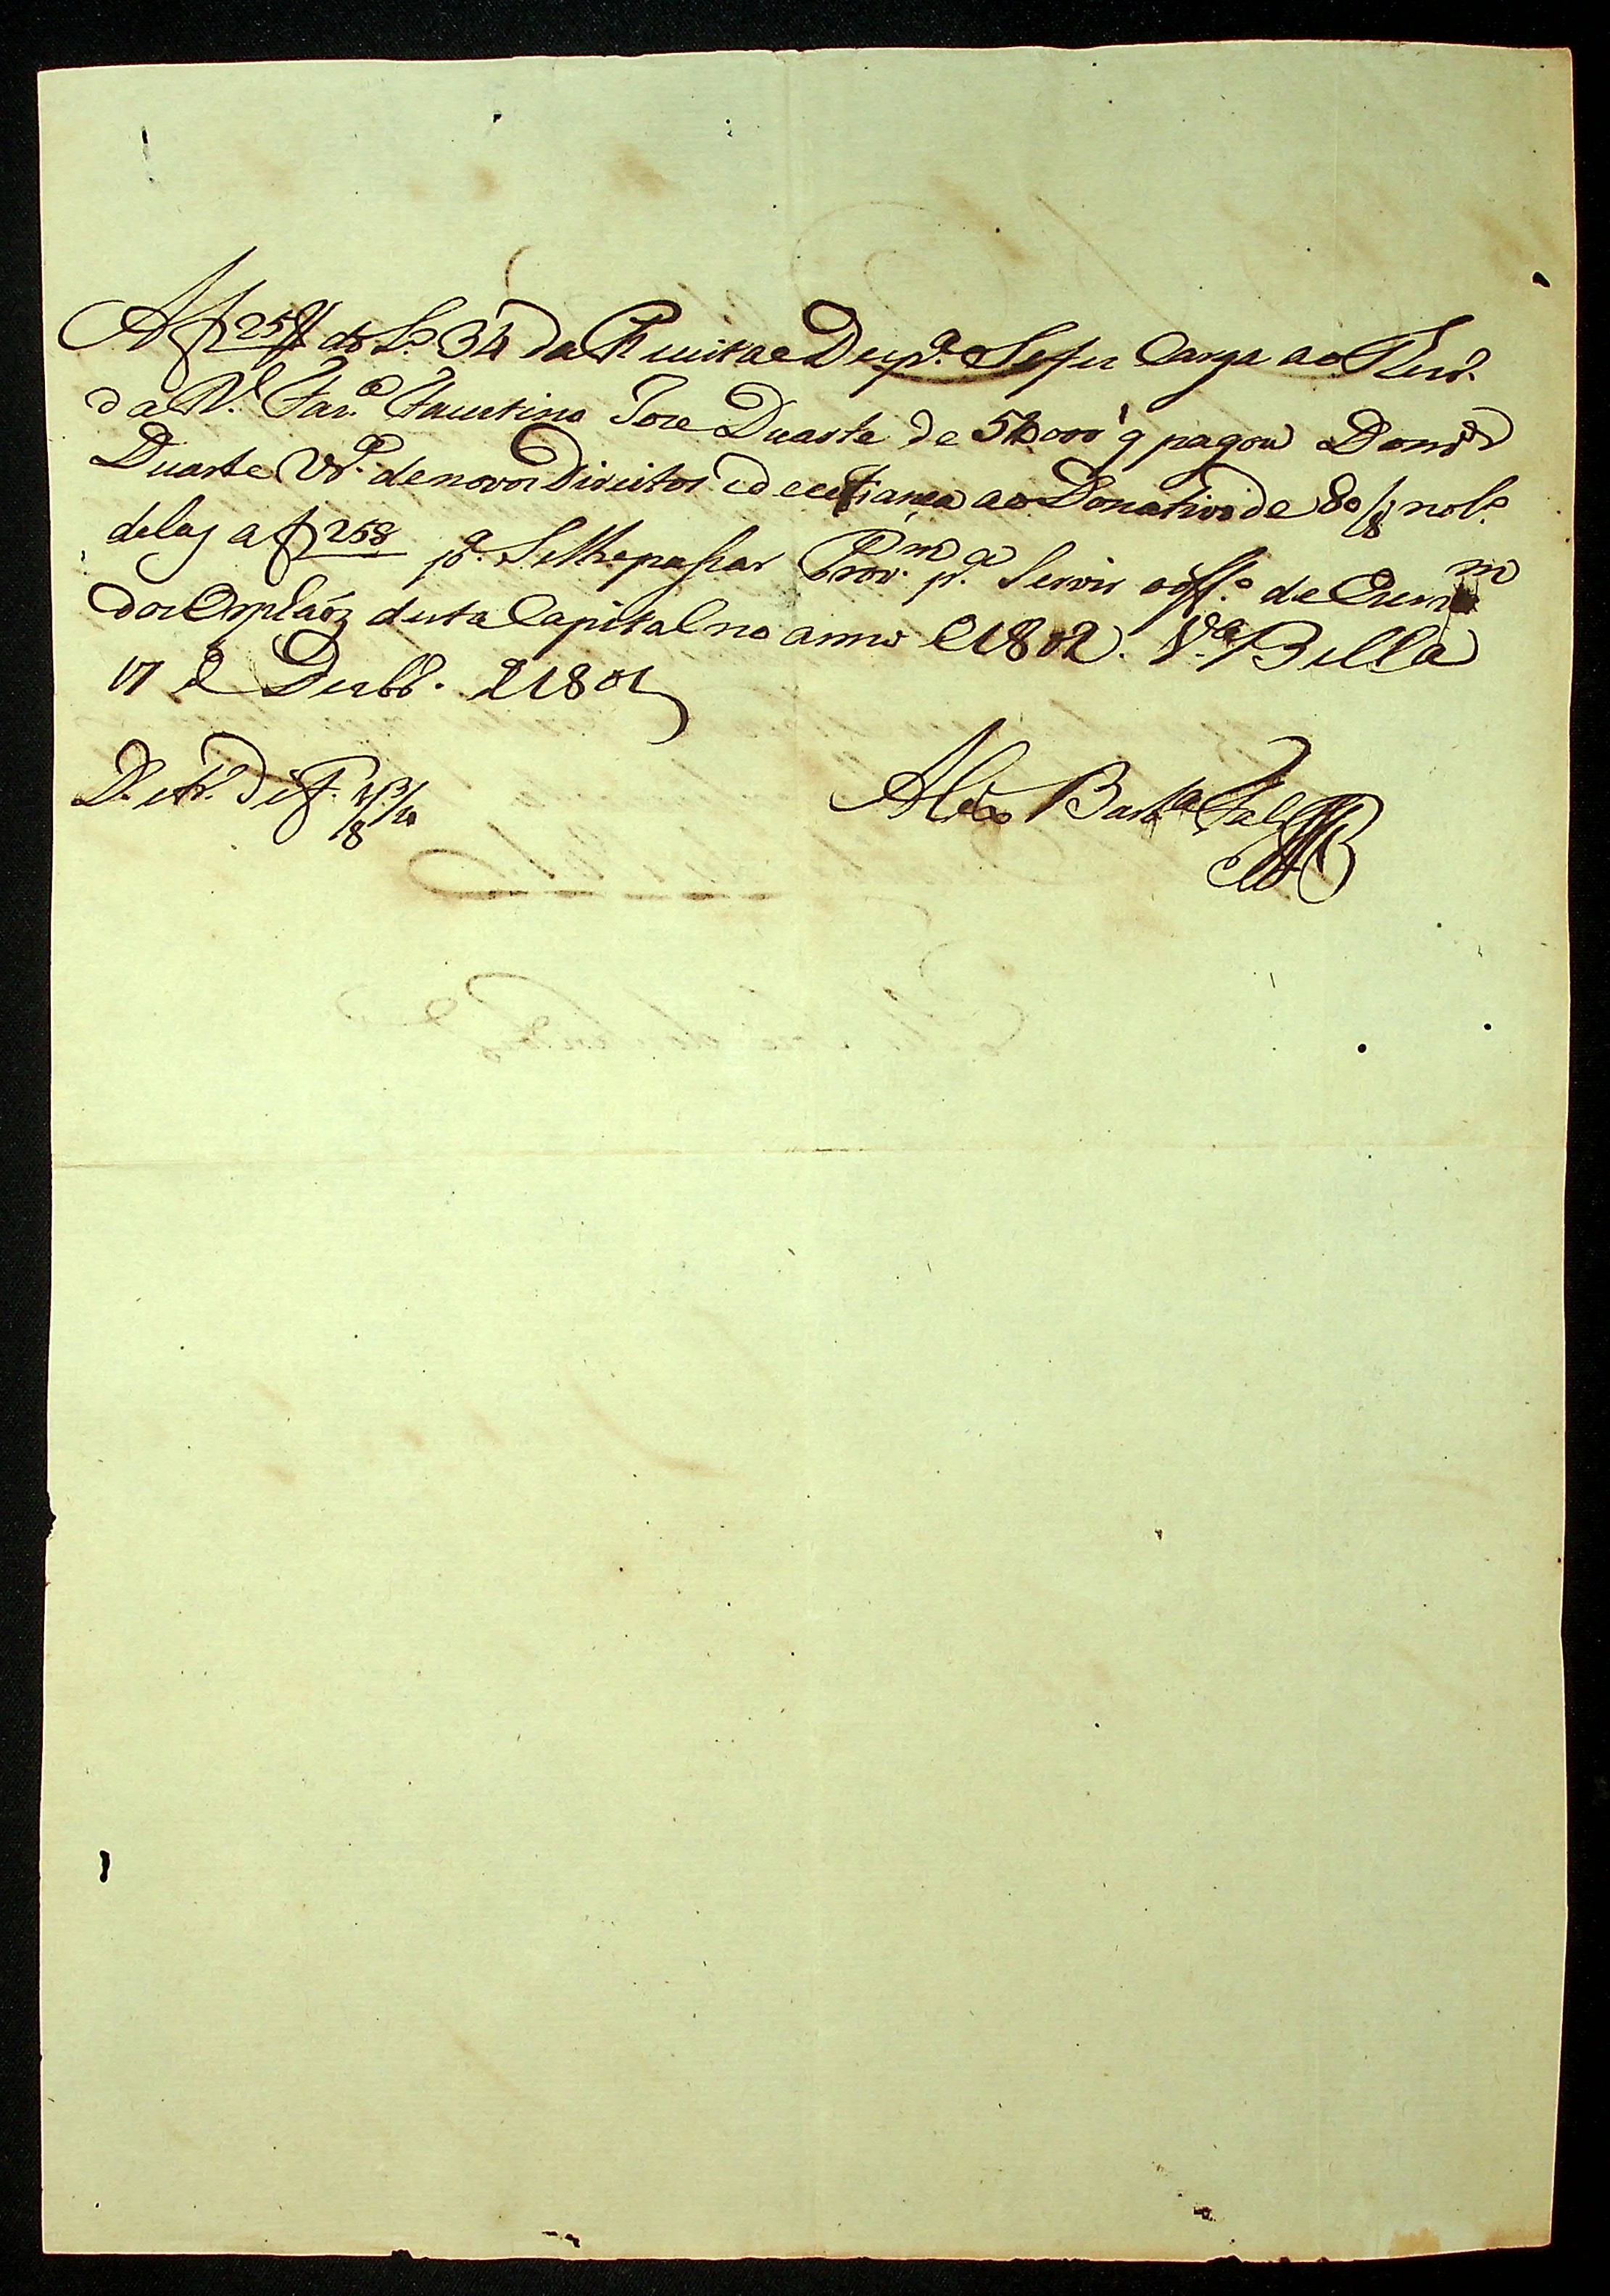 A f 258 do L.o 34 da Receita e Desp.a Se fez Carga ao Thez.
da R.l Faz.da Faustino Joze Duarte de 51000 q pagou Dom.os
Duarte de novos Direitos e deo fiança ao Donativo de 80/8 no L.o
delas a f 258 p.a Se lhe passar Prov.m p.a Servir o off.o de Escr.m
dos Orphaoz desta Capital no anno de 1802. V.a Bella
17 de Dezbr.o de 1801
Alex Bart.a